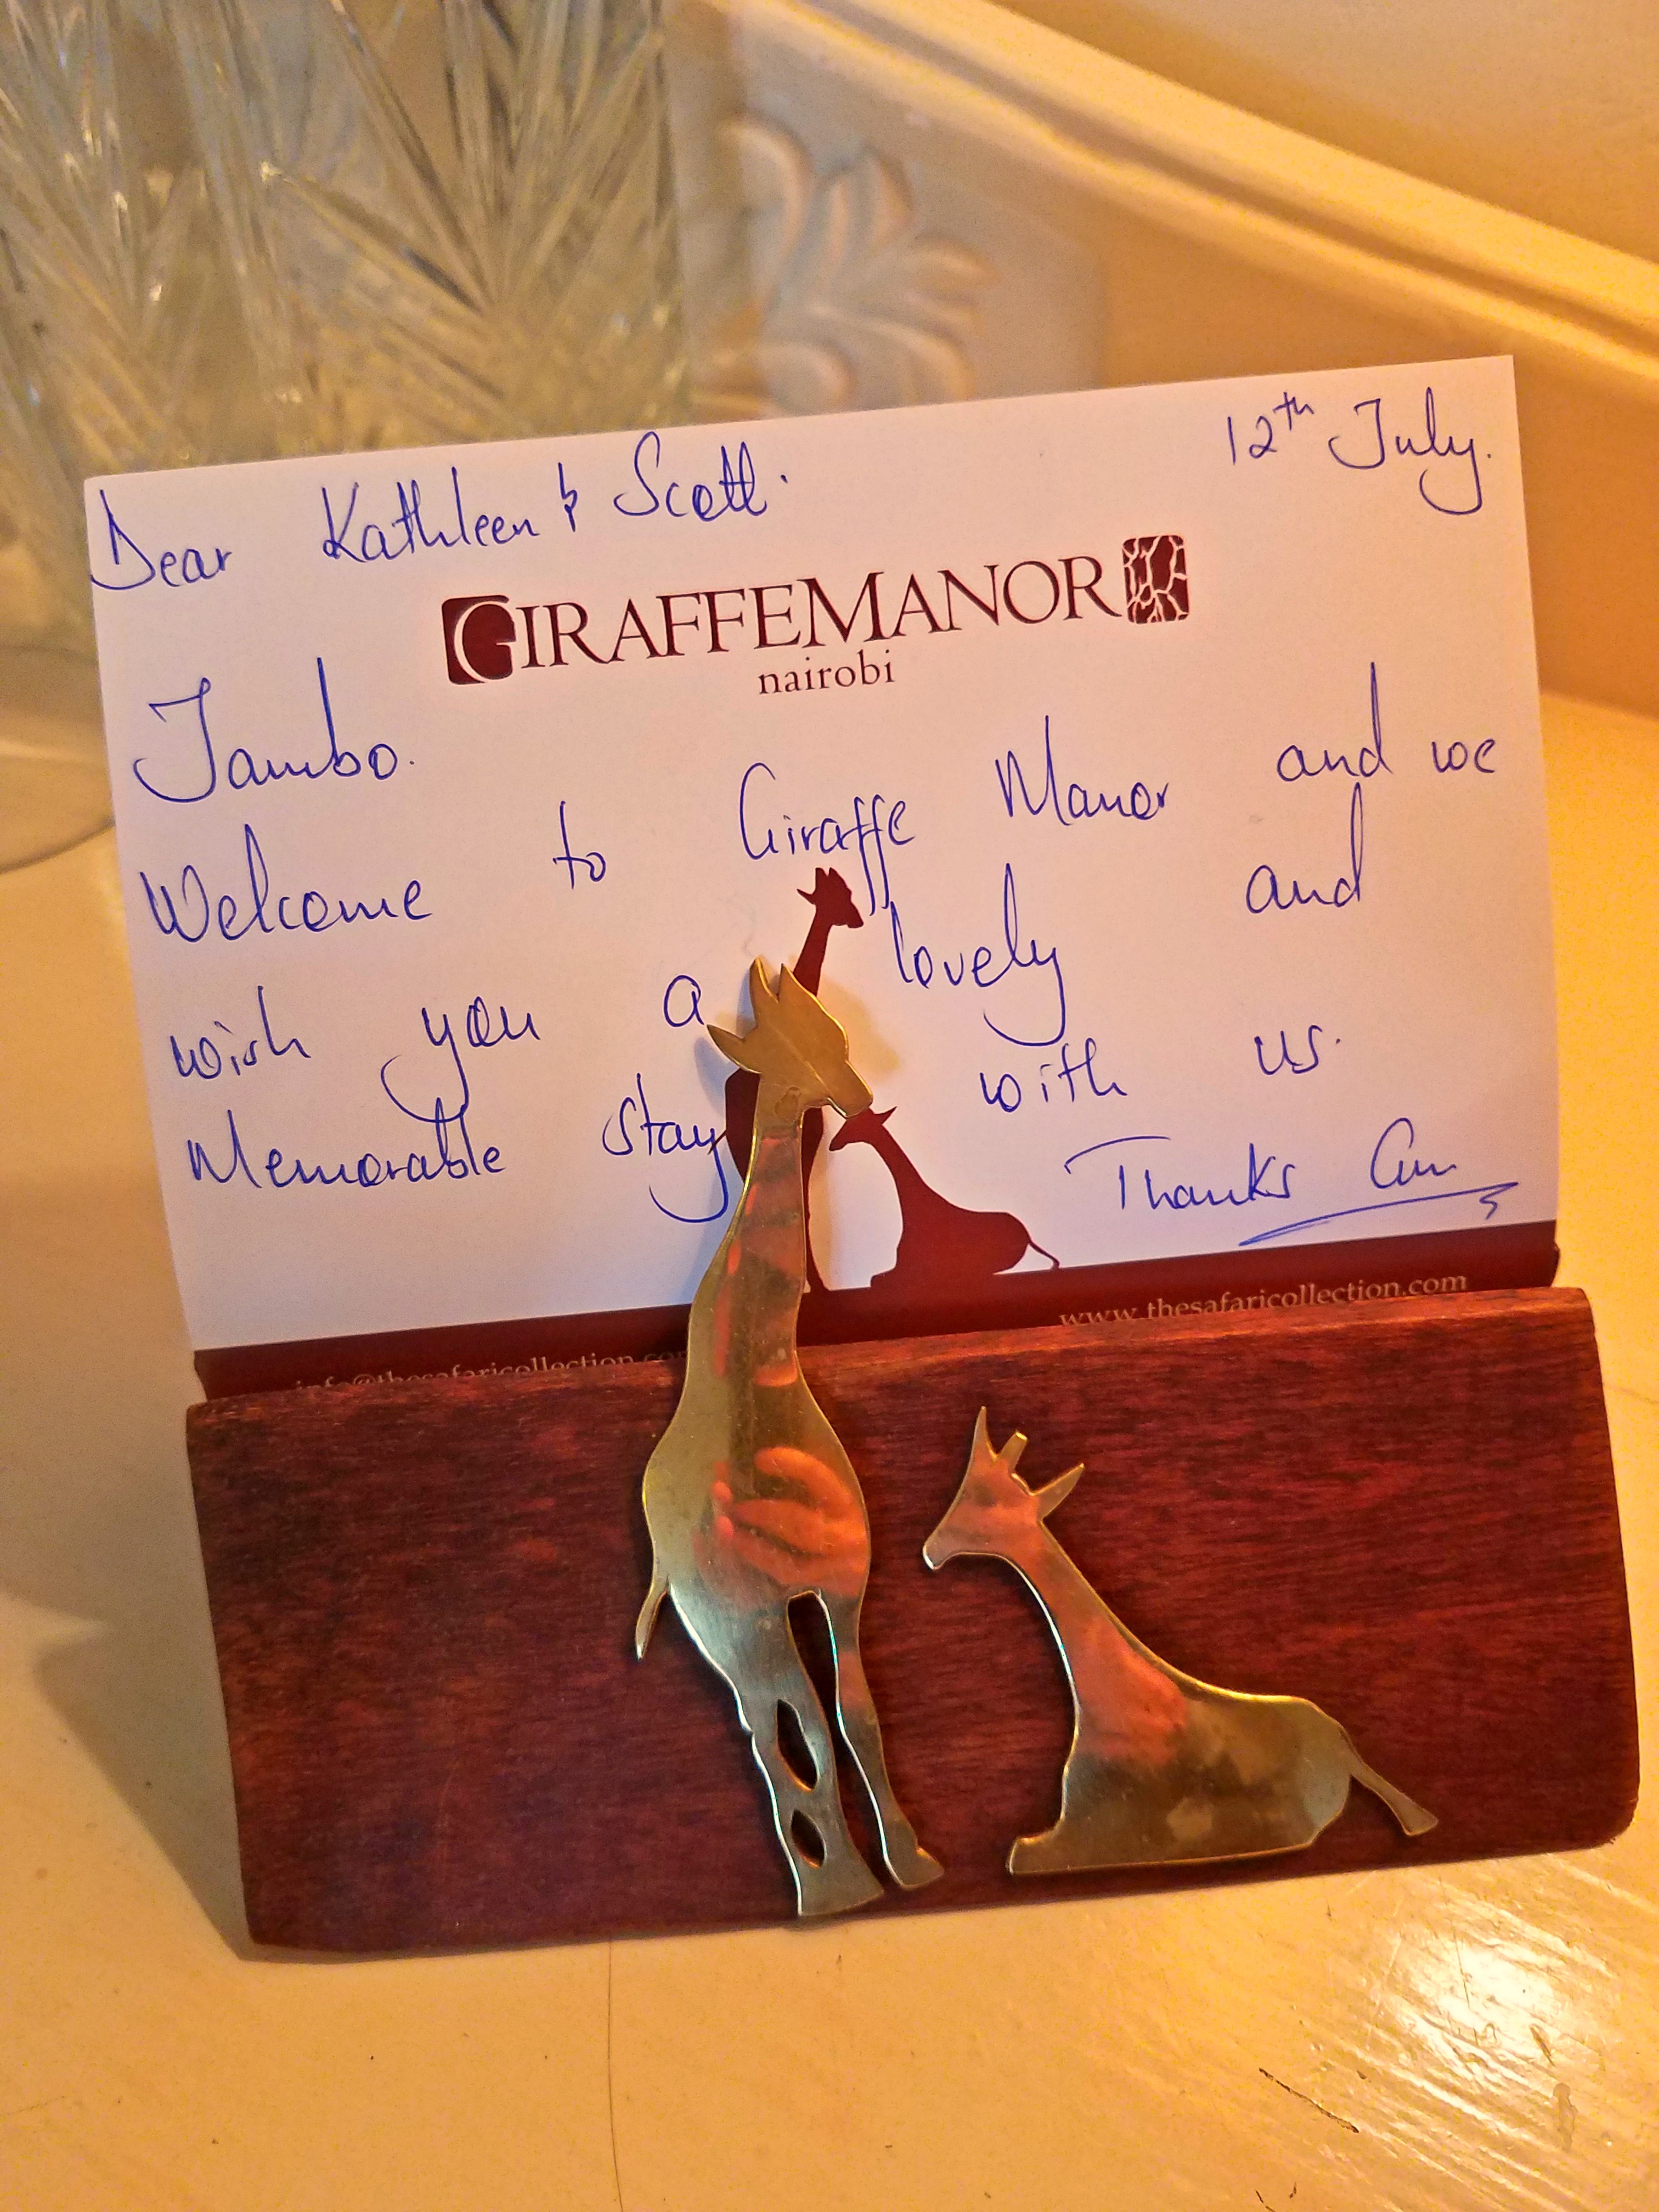 12th July.
Dear Kathleen & Scott.
GIRAFFEMANOR
nairobi
Jambo.
Welcome to Giraffe Manor and we
wish you a lovely and
Memorable stay with us.
Thanks
www.thesafaricollection.com
info@thesafaricollection.com